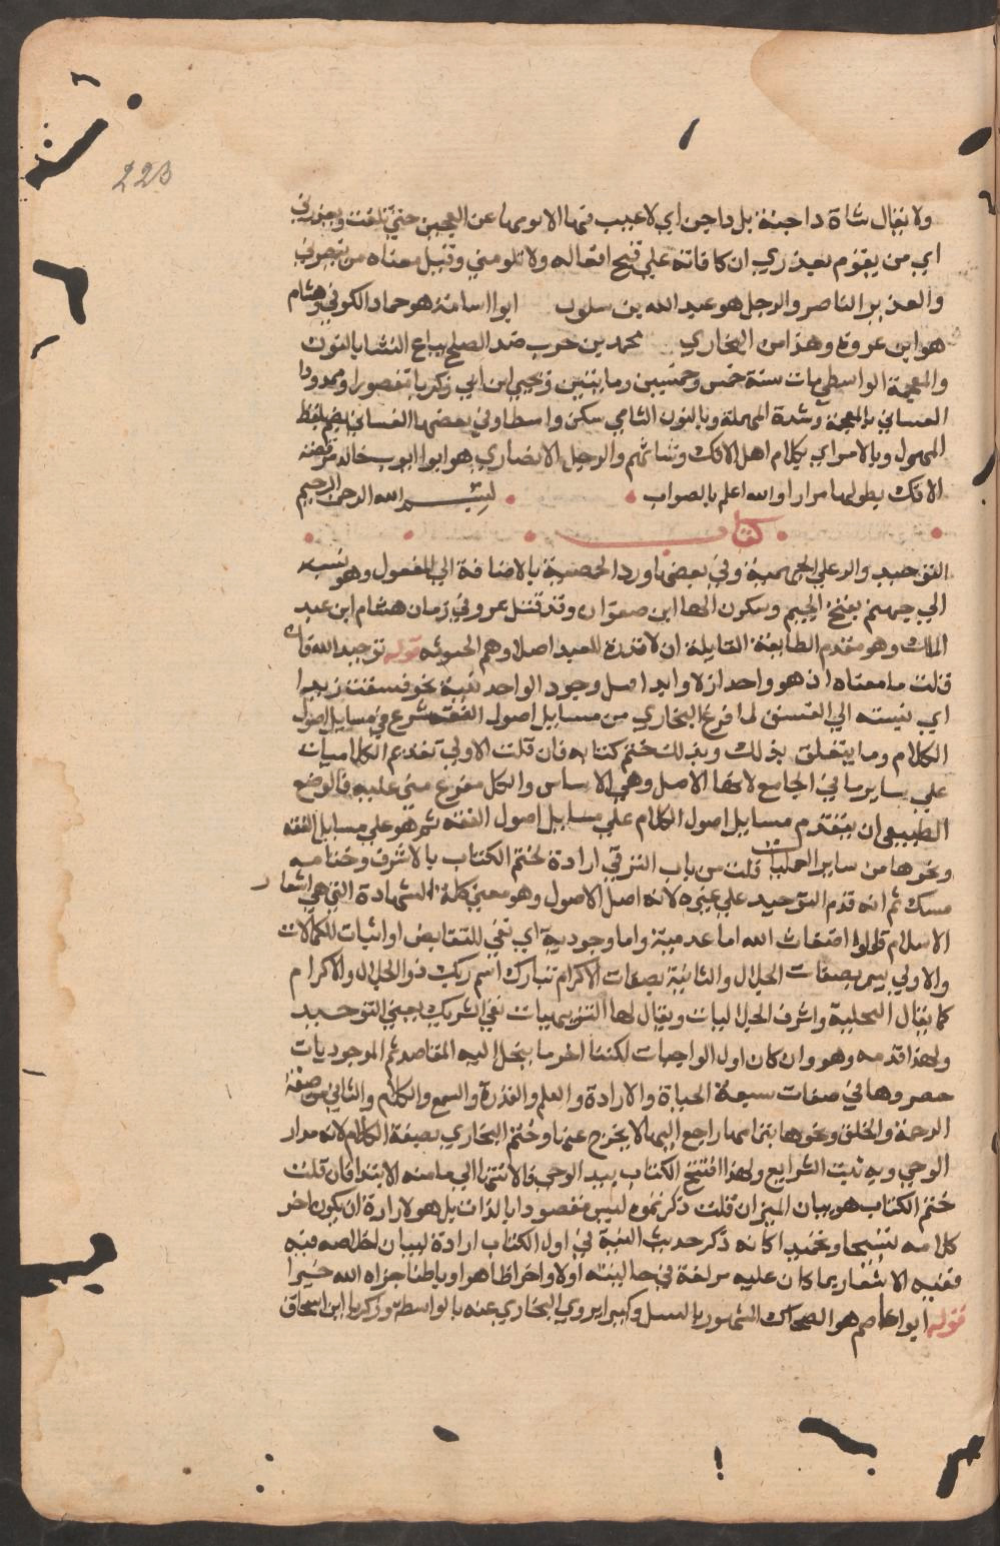 223
ولا يقال شاة داجنة بل داجن اي لا عيب فيها الا نومها عن العجين حتي تلفت ويعذرني
اي من يقوم بعذري ان كافاته علي قبح افعاله ولا تلومني وقيل معناه من ينصرني
والعذير الناصر والرجل هو عبد الله بن سلول ابو اسامة هو حماد الكوفي وهشام
هو ابن عروة وهذا من البخاري محمد بن حرب ضد الصلح بياع النشا بالنون
والمعجمة الواسطي مات سنة خمس وخمسين ومايتين ويحيي ابن ابي زكريا مقصورا وممدودا
الغساني بالمعجمة وشدة المهملة وبالنون الشامي سكن واسطا وفي بعضها العشاني بضم
المهملة وبالامر اي بكلام اهل الافك وشانهم والرجل الانصاري هو ابو ايوب خالد مر قصة
الافك بطولها مرارا والله اعلم بالصواب بسم الله الرحمن الرحيم
كتاب
التوحيد والرد علي الجهمية وفي بعضها ورد الجهمية بالاضافة الي المفعول وهو نسبة
الي جهم بفتح الجيم وسكون الها ابن صفوان وقد قتل بمرو في زمان هشام ابن عبد
الملك وهو مقدم الطايفة القايلة ان لا قدرة للعبد اصلا وهم الجبرية قوله توحيد الله فان
قلت ما معناه اذ هو واحد ازلا وابدا قبل وجود الواحد نسبة نحو فسقت زيدا
اي نسبته الي الفسق لما فرغ البخاري من مسايل اصول الفقه شرع في مسايل اصول
الكلام وما يتعلق بذلك وبذلك ختم كتابه فان قلت الاولي تقديم الكلاميات
علي ساير ما في الجامع لانها الاصل وهي الاساس والكل مفرع مبني عليه فالوضع
الطبيعي ان يتقدم مسايل اصول الكلام علي مسايل اصول الفقه ثم هو علي مسايل الفقه
ونحوها من ساير العمليات قلت من باب الترقي ارادة لختم الكتاب بالاشرف وختامه
مسك ثم انه قدم التوحيد علي غيره لانه اصل الاصول وهو معني كلمة الشهادة التي هي شعار
الاسلام قالوا صفات الله اما عدمية واما وجودية اي نفي للنقايص او اثبات للكمالات
والاولي يسمي بصفات الجلال والثانية بصفات الاكرام تبارك اسم ربك ذو الجلال والاكرام
كما يقال التحلية واشرف الجلاليات ويقال لها التنزيهيات نفي الشريك يعني التوحيد
ولهذا قدمه وهو وان كان اول الواجبات لكنه اخر ما ينحل اليه المقاصد ثم الموجوديات
حصروها في صفات سبعة الحياة والارادة والعلم والقدرة والسمع والكلام والثاني من صفة
الرحمة والخلق ونحوها بتمامها راجع اليها لا يخرج عنها وختم البخاري بصفة الكلام لانه مدار
الوحي وبه ثبت الشرايع ولهذا افتتح الكتاب ببد الوحي فالانتها الي ما منه الابتدا فان قلت
ختم الكتاب هو بيان الميزان قلت ذكر نموه ليس مقصودا بالذات بل هو لارادة ان يكون اخر
كلامه تسبيحا وتحميدا كانه ذكر حديث النية في اول الكتاب ارادة لبيان اخلاصه فيه
ففيه الاشعار بما كان عليه مولفه في حالتيه اولا واخرا ظاهرا وباطنا جزاه الله خيرا
قوله ابو عاصم هو الضحاك المشهور بالنبيل وكثيرا يروي البخاري عنه بالواسطة وزكريا ابن اسحاق